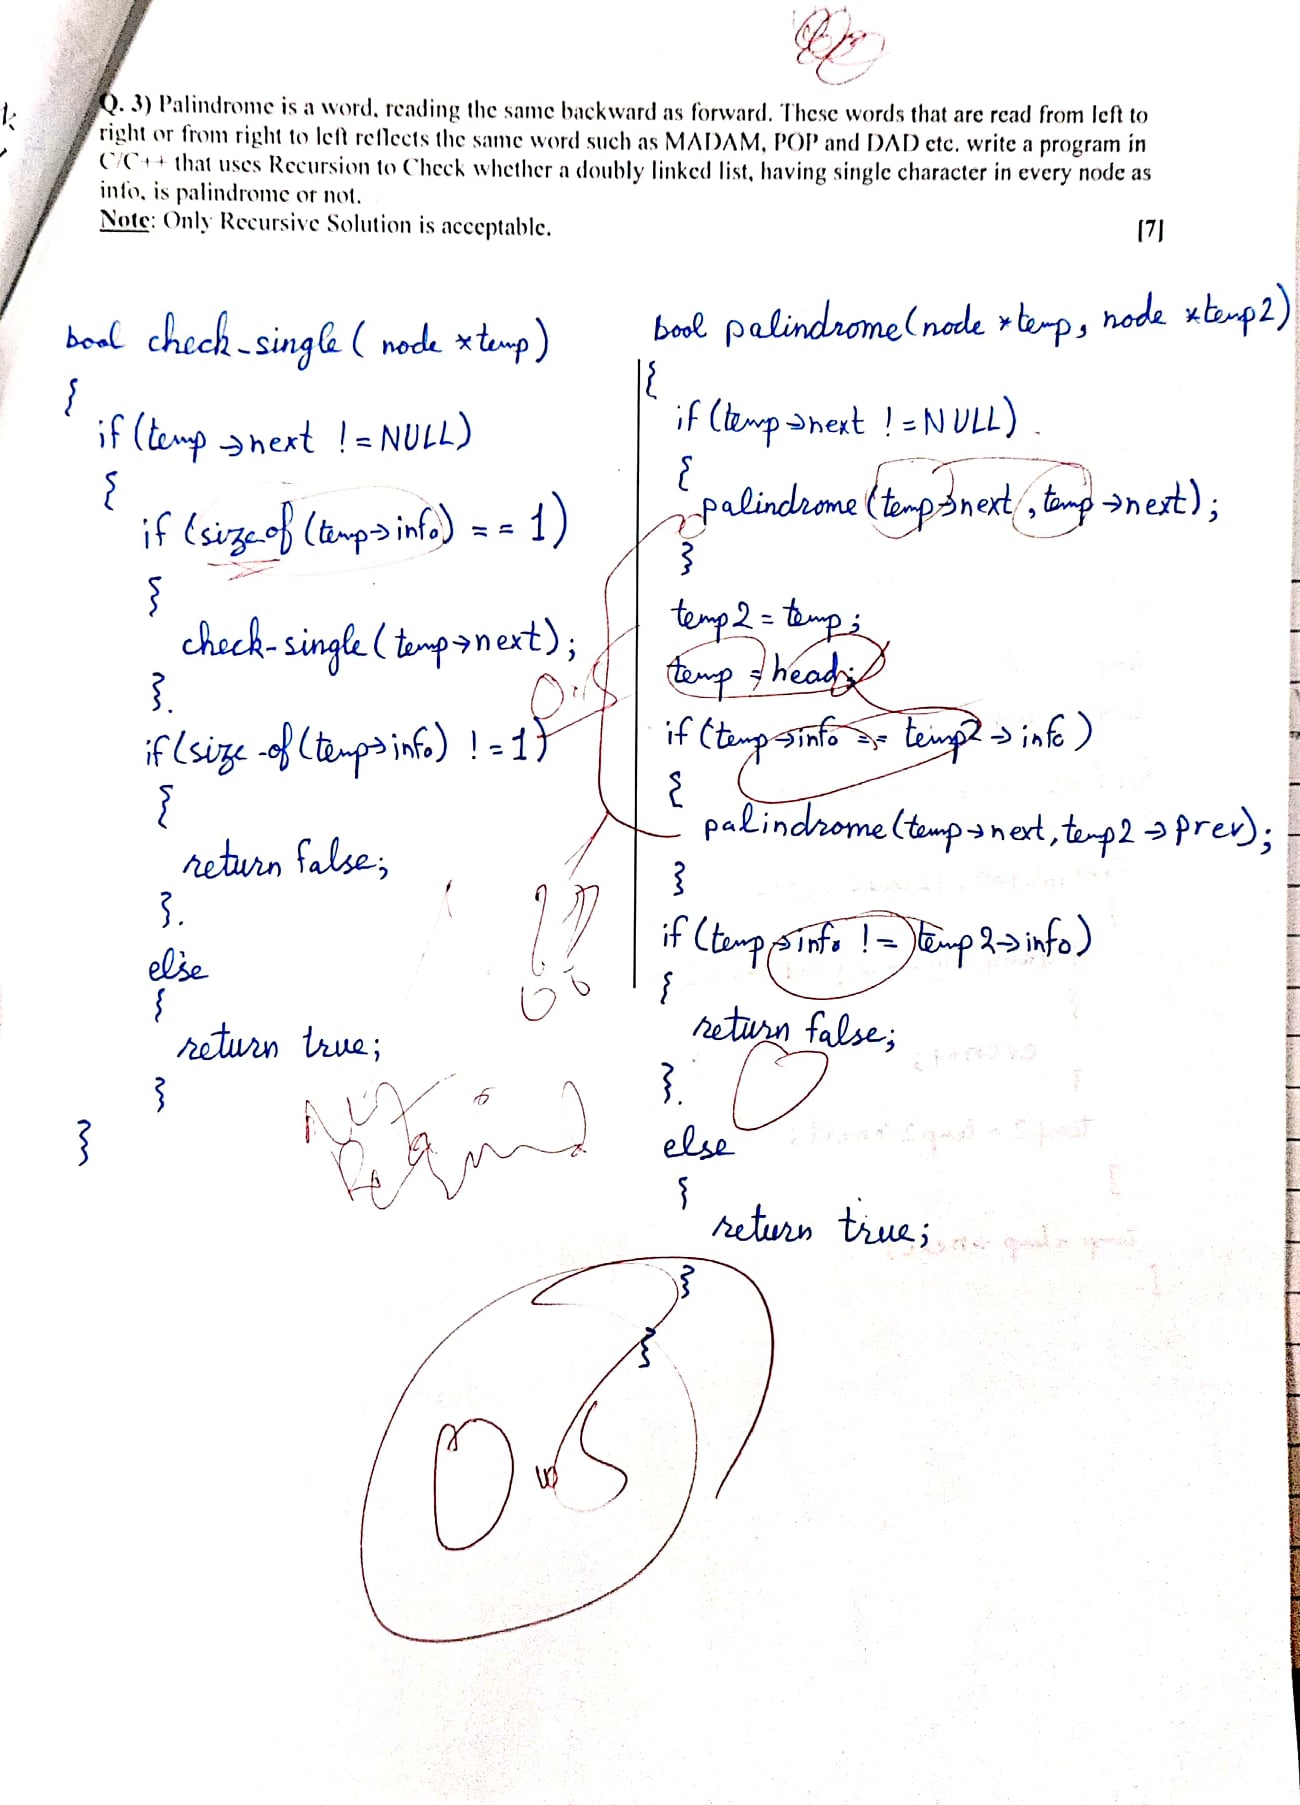 Q. 3) Palindrome is a word, reading the same backward as forward. These words that are read from left to
right or from right to left reflects the same word such as MADAM, POP and DAD etc. write a program in
C/C++ that uses Recursion to Check whether a doubly linked list, having single character in every node as
info, is palindrome or not.
Note: Only Recursive Solution is acceptable. [7]
bool check-single ( node *temp)
{
if (temp →next != NULL)
{
if (sizeof (temp→info) == 1)
{
check-single (temp→next);
}.
if (size-of (temp→info) != 1)
{
return false;
}.
else
{
return true;
}
}
bool palindrome (node *temp, node *temp2)
{
if (temp→next != NULL).
{
palindrome (temp→next, temp→next);
}
temp2 = temp;
temp = head;
if (temp→info == temp2→info)
{
palindrome (temp→next, temp2→prev);
}
if (temp→info != temp2→info)
{
return false;
}.
else
{
return true;
}
}
0.5
??
Not
Required
0.5